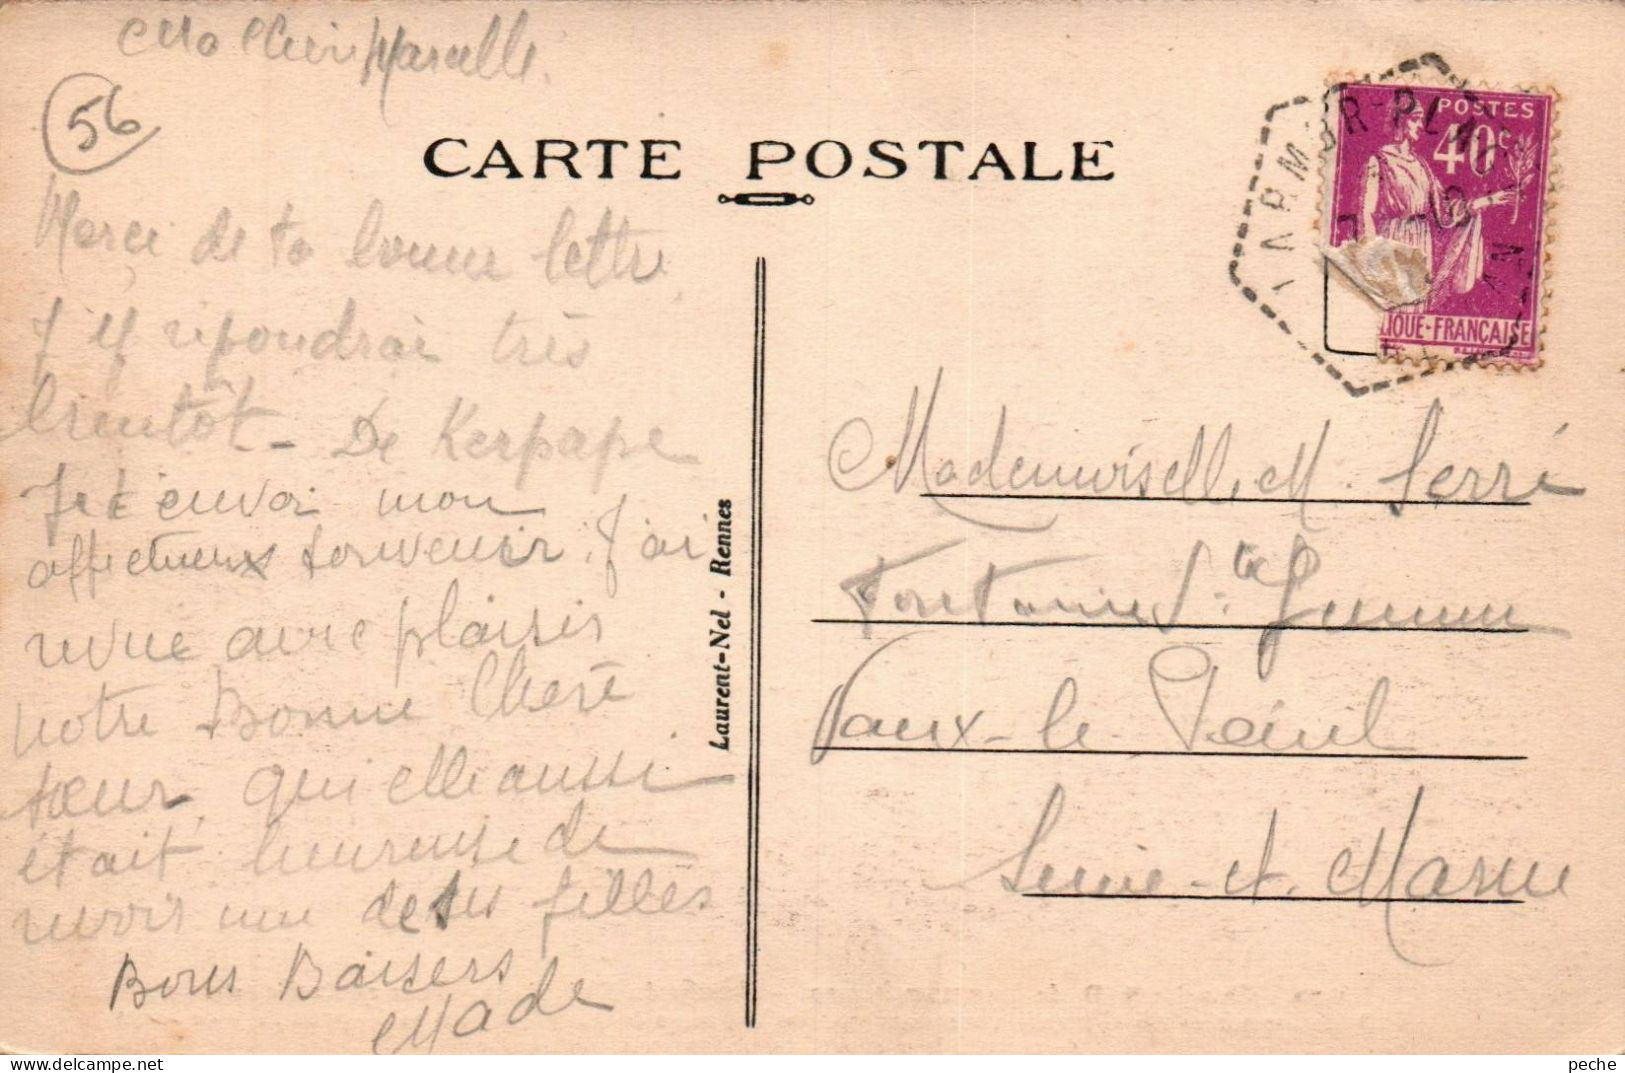 Ma Chère Marcelle.
56
CARTE POSTALE
Merci de ta bonne lettre.
J'y répondrai très
bientôt - De Kerpape
Je t'envoi mon
affectueux souvenir. J'ai
revue avec plaisir
notre Bonne Chère
sœur, qui elle aussi
était heureuse de
revoir une de ses filles
Bons Baisers
Made
Laurent-Nel - Rennes
POSTES
40c
LIQUE-FRANÇAISE
LARMOR-PLA
Mademoiselle M. Serré
Fontaine Ste
Vaux-le-Pénil
Seine-et-Marne
peche